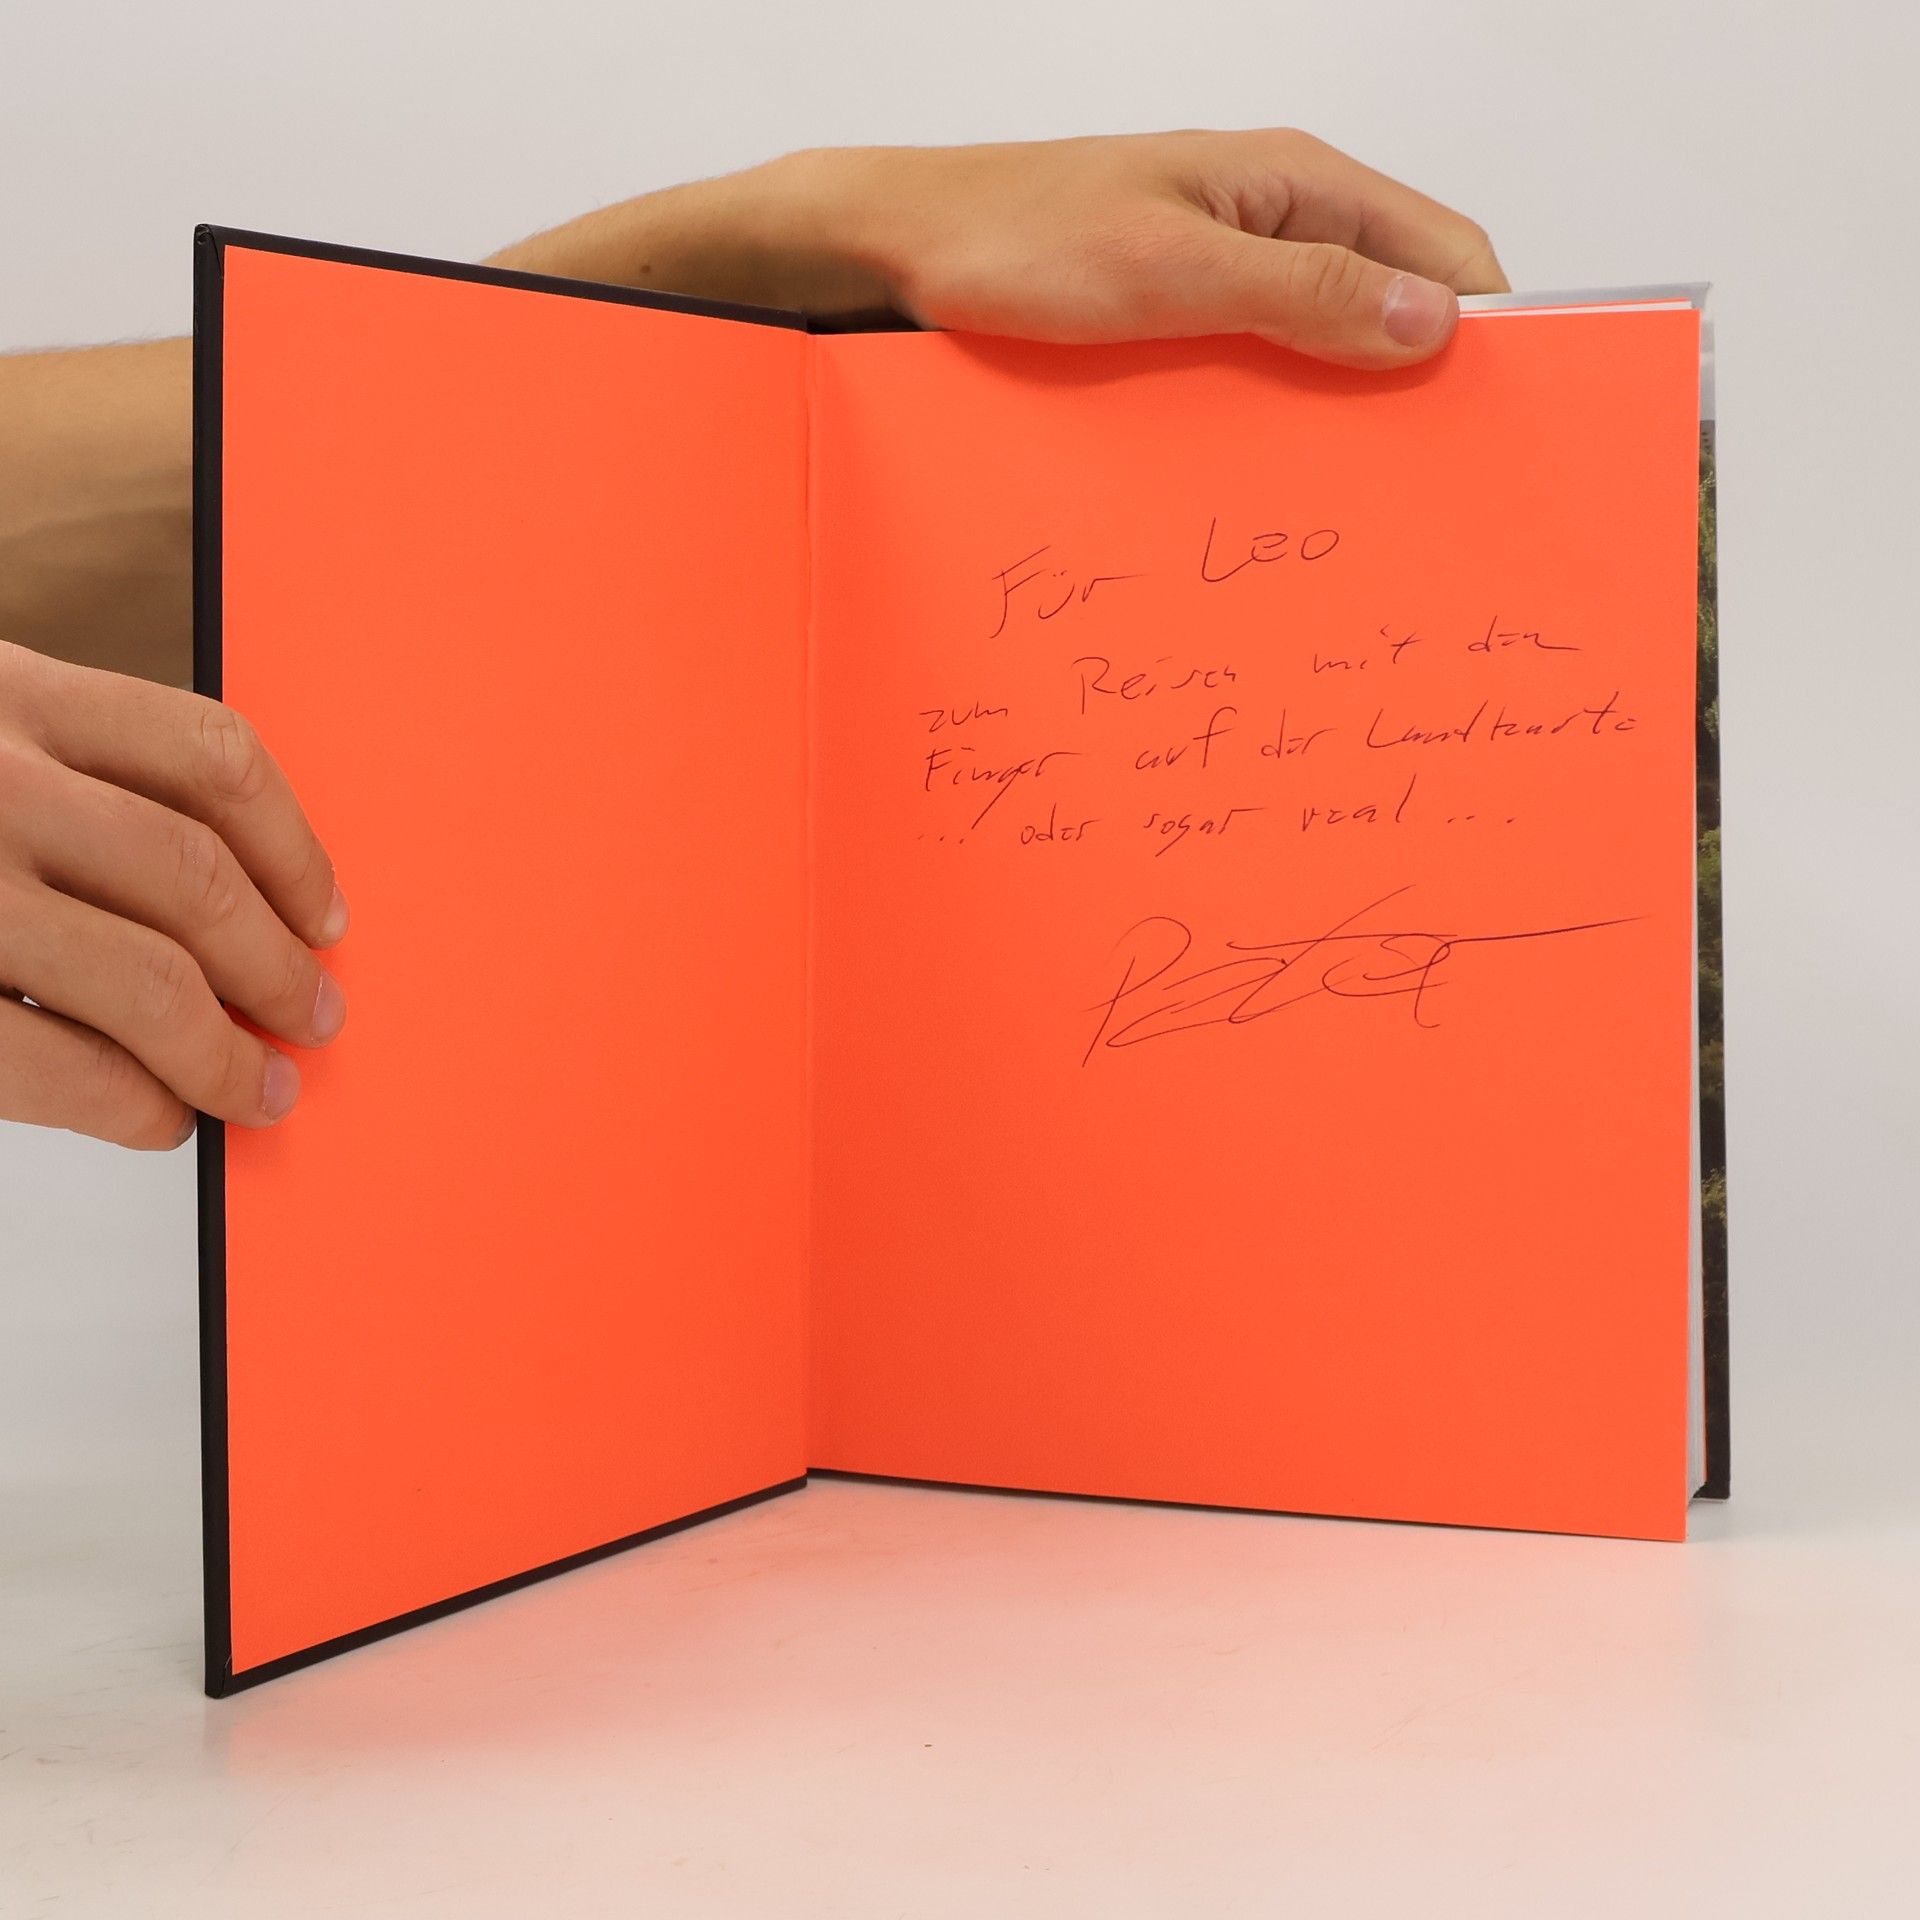 Für Leo
zum Reisen mit dem
Finger auf der Landkarte
... oder sogar real ...
Peter